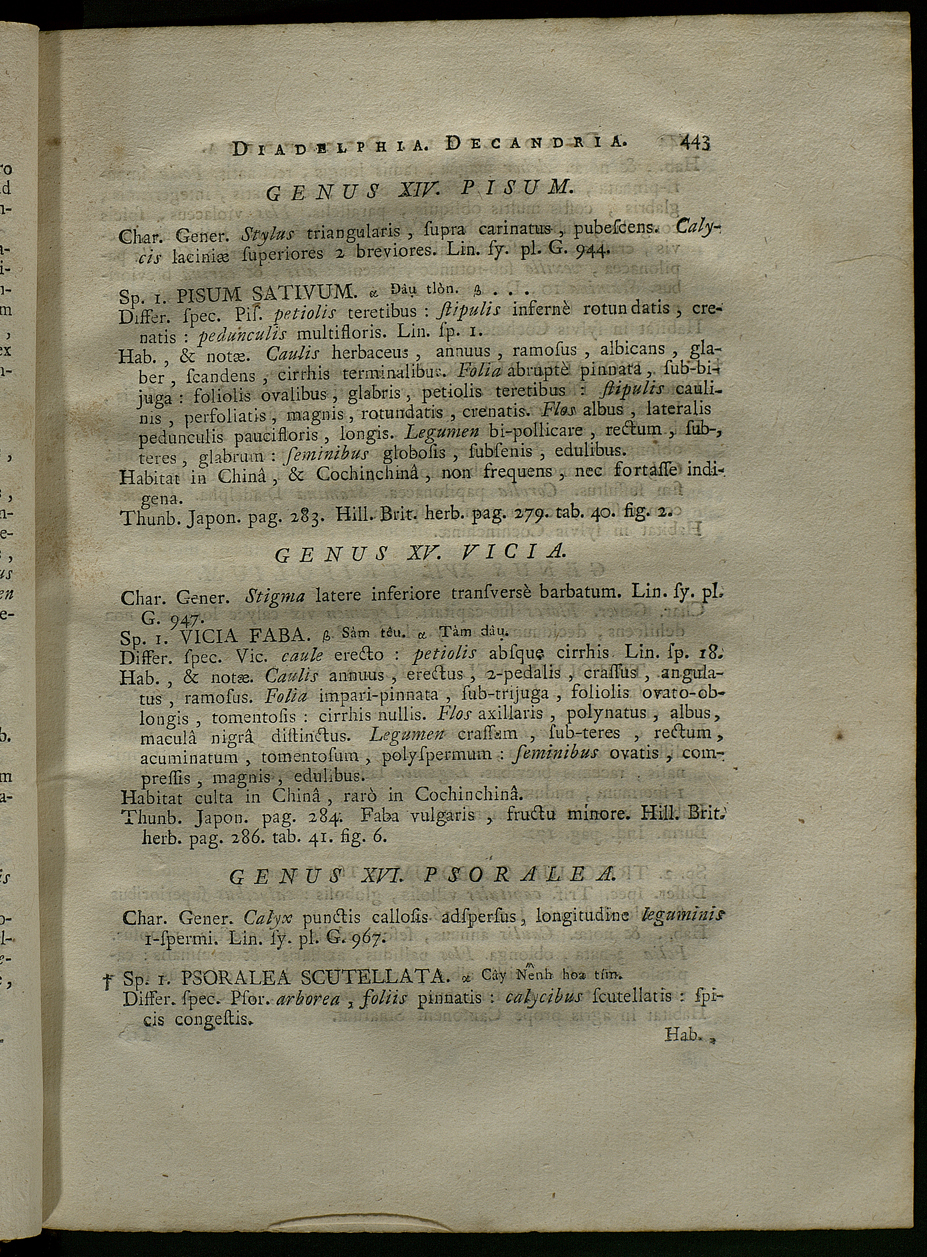 DIADELPHIA. DECANDRIA. 443
GENUS XIV. PISUM.
Char. Gener. Stylus triangularis , ſupra carinatus , pubeſcens. Caly-
cis laciniæ ſuperiores 2 breviores. Lin. ſy. pl. G. 944.
Sp. 1. PISUM SATIVUM. α Ðâ̤u tlòn. β . . .
Differ. ſpec. Piſ. petiolis teretibus : ſtipulis infernè rotundatis , cre-
natis : pedunculis multifloris. Lin. ſp. 1.
Hab. , & notæ. Caulis herbaceus , annuus , ramoſus , albicans , gla-
ber , ſcandens , cirrhis terminalibus. Folia abruptè pinnata , ſub-bi-
juga : foliolis ovalibus , glabris , petiolis teretibus : ſtipulis cauli-
nis , perfoliatis , magnis , rotundatis , crenatis. Flos albus , lateralis
pedunculis paucifloris , longis. Legumen bi-pollicare , rectum , ſub-
teres , glabrum : ſeminibus globoſis , ſubſenis , edulibus.
Habitat in Chinâ , & Cochinchinâ , non frequens , nec fortaſſe indi-
gena.
Thunb. Japon. pag. 283. Hill. Brit. herb. pag. 279. tab. 40. fig. 2.
GENUS XV. VICIA.
Char. Gener. Stigma latere inferiore tranſverſè barbatum. Lin. ſy. pl.
G. 947.
Sp. 1. VICIA FABA. β Sàm têu. α Tàm dâ̤u.
Differ. ſpec. Vic. caule erecto : petiolis abſque cirrhis. Lin. ſp. 18.
Hab. , & notæ. Caulis annuus , erectus , 2-pedalis , craſſus , angula-
tus , ramoſus. Folia impari-pinnata , ſub-trijuga , foliolis ovato-ob-
longis , tomentoſis : cirrhis nullis. Flos axillaris , polynatus , albus ,
maculâ nigrâ diſtinctus. Legumen craſſum , ſub-teres , rectum ,
acuminatum , tomentoſum , polyſpermum : ſeminibus ovatis , com-
preſſis , magnis , edulibus.
Habitat culta in Chinâ , rarò in Cochinchinâ.
Thunb. Japon. pag. 284. Faba vulgaris , fructu minore. Hill. Brit.
herb. pag. 286. tab. 41. fig. 6.
GENUS XVI. PSORALEA.
Char. Gener. Calyx punctis calloſis adſperſus , longitudine leguminis
1-ſpermi. Lin. ſy. pl. G. 967.
† Sp. 1. PSORALEA SCUTELLATA. α Cây hoa tím.
Differ. ſpec. Pſor. arborea , foliis pinnatis : calycibus ſcutellatis : ſpi-
cis congeſtis.
Hab. ,